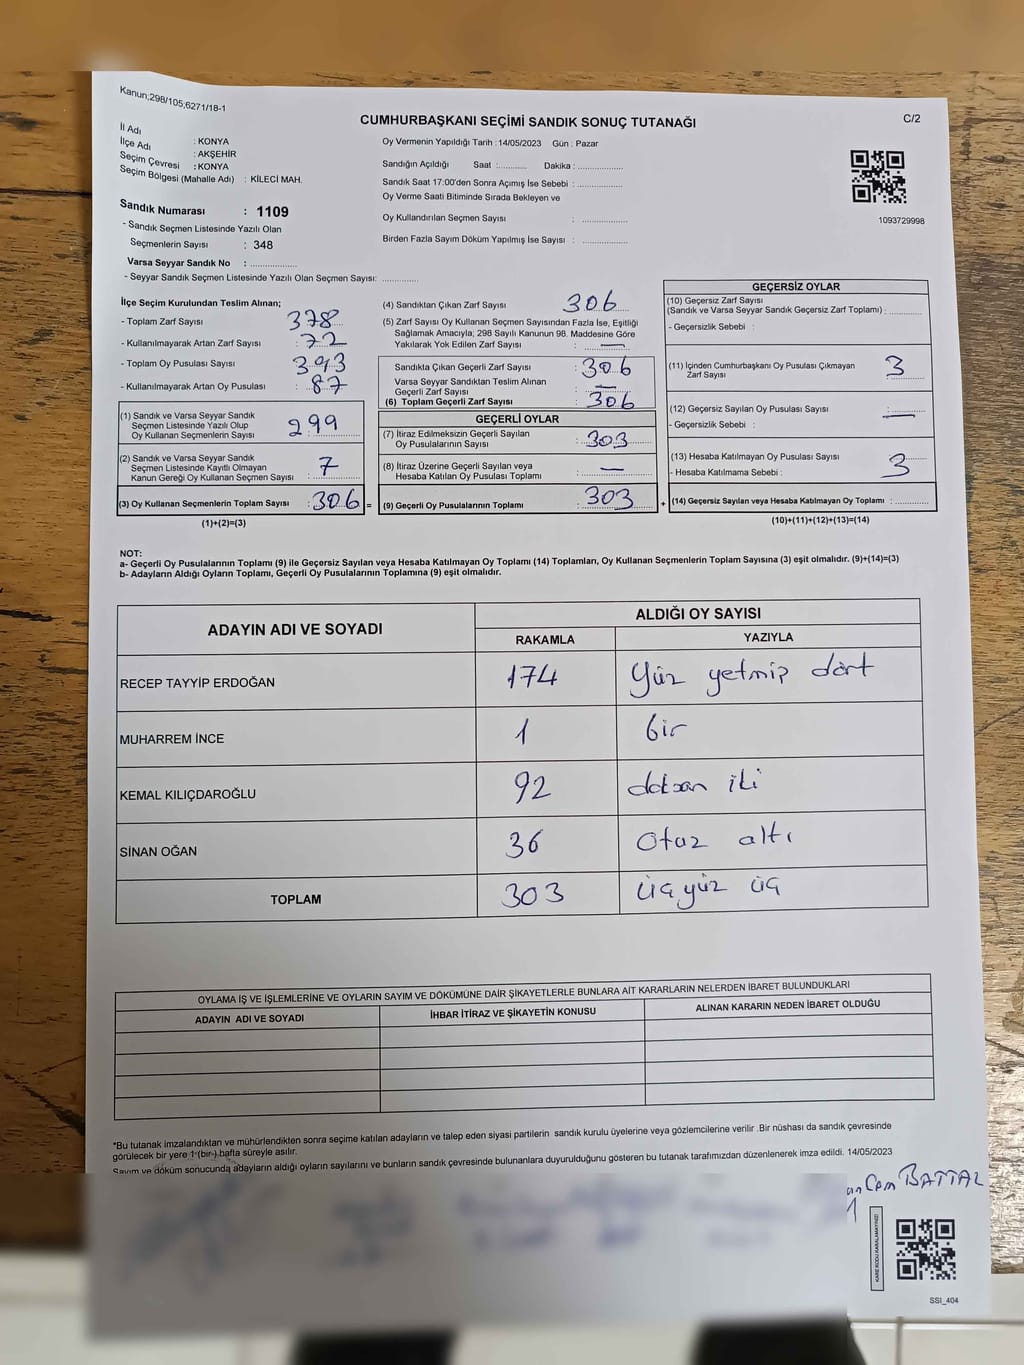 Kanun;298/105;6271/18-1
CUMHURBAŞKANI SEÇİMİ SANDIK SONUÇ TUTANAĞI
C/2
İl Adı : KONYA
İlçe Adı : AKŞEHİR
Seçim Çevresi : KONYA
Seçim Bölgesi (Mahalle Adı) : KİLECİ MAH.
Sandık Numarası : 1109
- Sandık Seçmen Listesinde Yazılı Olan
Seçmenlerin Sayısı : 348
Varsa Seyyar Sandık No : ................
- Seyyar Sandık Seçmen Listesinde Yazılı Olan Seçmen Sayısı: ............
Oy Vermenin Yapıldığı Tarih : 14/05/2023 Gün : Pazar
Sandığın Açıldığı Saat :......... Dakika :...............
Sandık Saat 17:00'den Sonra Açımış İse Sebebi : ...............
Oy Verme Saati Bitiminde Sırada Bekleyen ve
Oy Kullandırılan Seçmen Sayısı : ...............
Birden Fazla Sayım Döküm Yapılmış İse Sayısı : ...............
1093729998
İlçe Seçim Kurulundan Teslim Alınan;
- Toplam Zarf Sayısı : 378
- Kullanılmayarak Artan Zarf Sayısı : 72
- Toplam Oy Pusulası Sayısı : 393
- Kullanılmayarak Artan Oy Pusulası : 87
(1) Sandık ve Varsa Seyyar Sandık
Seçmen Listesinde Yazılı Olup
Oy Kullanan Seçmenlerin Sayısı : 299
(2) Sandık ve Varsa Seyyar Sandık
Seçmen Listesinde Kayıtlı Olmayan
Kanun Gereği Oy Kullanan Seçmen Sayısı : 7
(3) Oy Kullanan Seçmenlerin Toplam Sayısı : 306 =
(1)+(2)=(3)
(4) Sandıktan Çıkan Zarf Sayısı : 306
(5) Zarf Sayısı Oy Kullanan Seçmen Sayısından Fazla İse, Eşitliği
Sağlamak Amacıyla; 298 Sayılı Kanunun 98. Maddesine Göre
Yakılarak Yok Edilen Zarf Sayısı : —
Sandıkta Çıkan Geçerli Zarf Sayısı : 306
Varsa Seyyar Sandıktan Teslim Alınan
Geçerli Zarf Sayısı : —
(6) Toplam Geçerli Zarf Sayısı : 306
GEÇERLİ OYLAR
(7) İtiraz Edilmeksizin Geçerli Sayılan
Oy Pusulalarının Sayısı : 303
(8) İtiraz Üzerine Geçerli Sayılan veya
Hesaba Katılan Oy Pusulası Toplamı : —
(9) Geçerli Oy Pusulalarının Toplamı : 303 +
GEÇERSİZ OYLAR
(10) Geçersiz Zarf Sayısı
(Sandık ve Varsa Seyyar Sandık Geçersiz Zarf Toplamı) : ............
- Geçersizlik Sebebi :
(11) İçinden Cumhurbaşkanı Oy Pusulası Çıkmayan
Zarf Sayısı : 3
(12) Geçersiz Sayılan Oy Pusulası Sayısı : —
- Geçersizlik Sebebi :
(13) Hesaba Katılmayan Oy Pusulası Sayısı : 3
- Hesaba Katılmama Sebebi :
(14) Geçersiz Sayılan veya Hesaba Katılmayan Oy Toplamı : ............
(10)+(11)+(12)+(13)=(14)
NOT:
a- Geçerli Oy Pusulalarının Toplamı (9) ile Geçersiz Sayılan veya Hesaba Katılmayan Oy Toplamı (14) Toplamları, Oy Kullanan Seçmenlerin Toplam Sayısına (3) eşit olmalıdır. (9)+(14)=(3)
b- Adayların Aldığı Oyların Toplamı, Geçerli Oy Pusulalarının Toplamına (9) eşit olmalıdır.
ADAYIN ADI VE SOYADI
ALDIĞI OY SAYISI
RAKAMLA YAZIYLA
RECEP TAYYİP ERDOĞAN 174 Yüz yetmiş dört
MUHARREM İNCE 1 bir
KEMAL KILIÇDAROĞLU 92 doksan iki
SİNAN OĞAN 36 Otuz altı
TOPLAM 303 üçyüz üç
OYLAMA İŞ VE İŞLEMLERİNE VE OYLARIN SAYIM VE DÖKÜMÜNE DAİR ŞİKAYETLERLE BUNLARA AİT KARARLARIN NELERDEN İBARET BULUNDUKLARI
ADAYIN ADI VE SOYADI İHBAR İTİRAZ VE ŞİKAYETİN KONUSU ALINAN KARARIN NEDEN İBARET OLDUĞU
*Bu tutanak imzalandıktan ve mühürlendikten sonra seçime katılan adayların ve talep eden siyasi partilerin sandık kurulu üyelerine veya gözlemcilerine verilir .Bir nüshası da sandık çevresinde
görülecek bir yere 1 (bir-) hafta süreyle asılır.
Sayım ve döküm sonucunda adayların aldığı oyların sayılarını ve bunların sandık çevresinde bulunanlara duyurulduğunu gösteren bu tutanak tarafımızdan düzenlenerek imza edildi. 14/05/2023
Cem BATTAL
KARE KODU KARALAMAYINIZ!
SSI_404